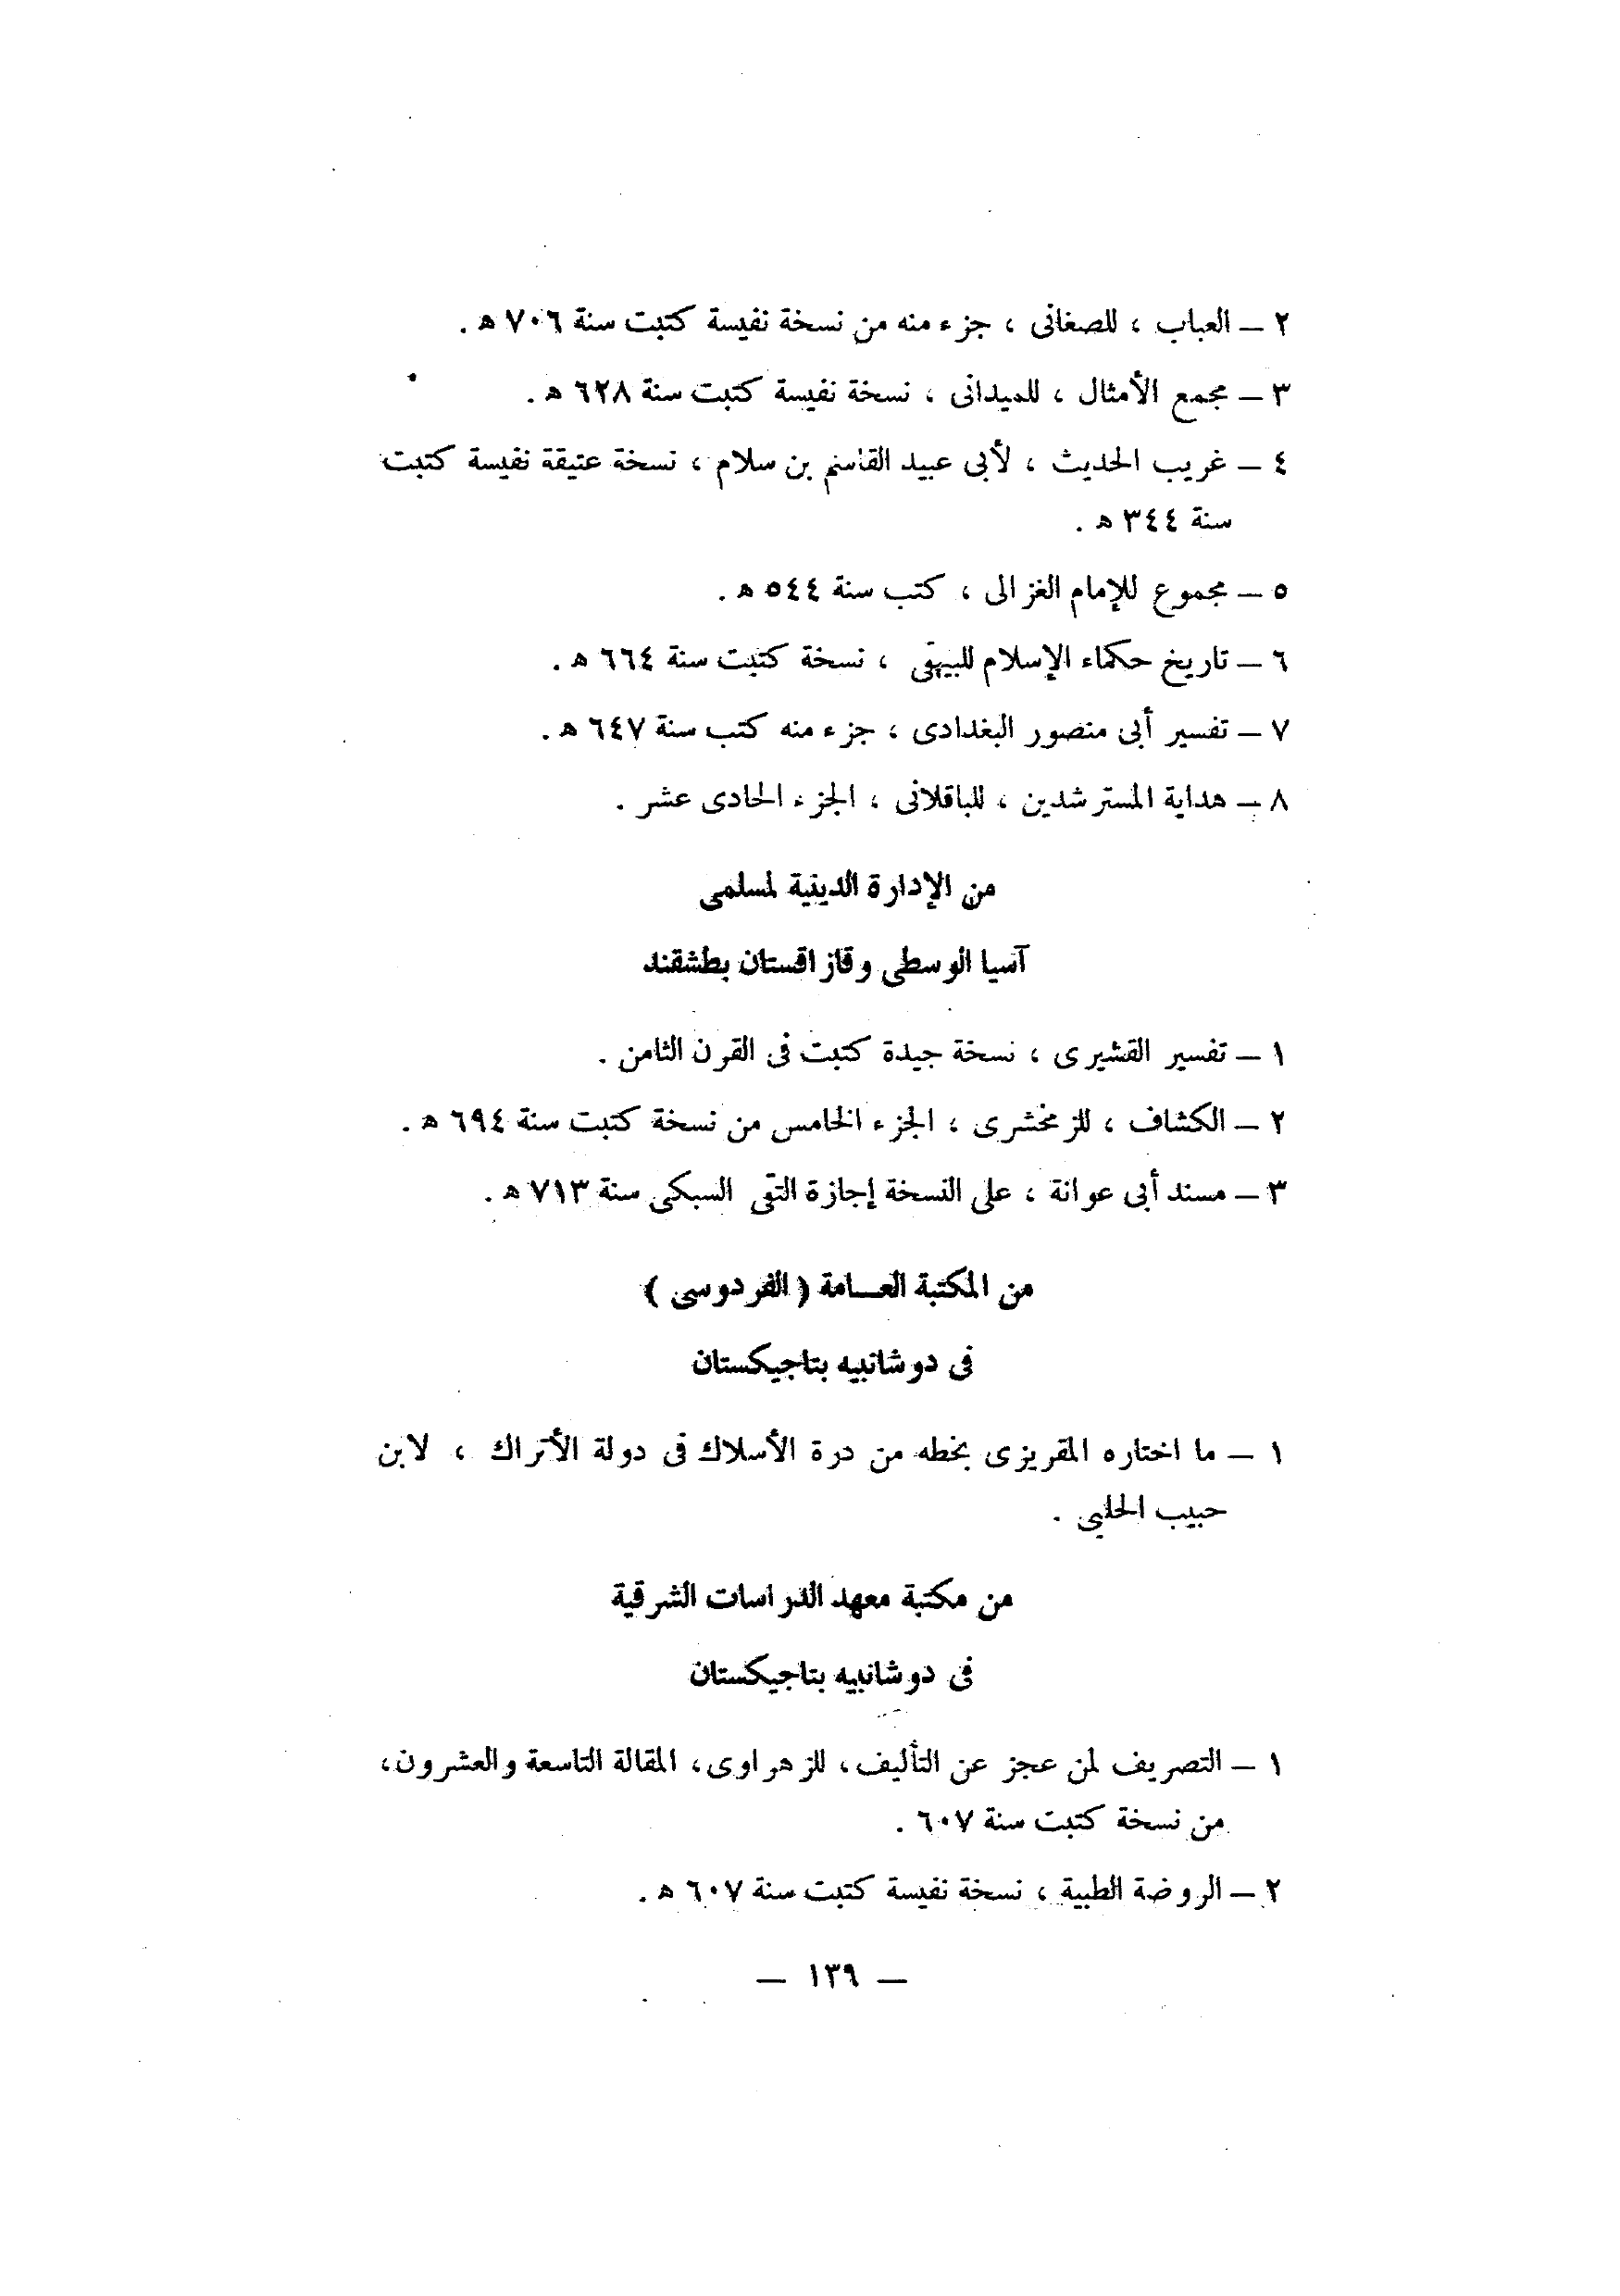 ٢ — العباب ، للصغانى ، جزء منه من نسخة نفيسة كتبت سنة ٧٠٦ ه .
٣ — مجمع الأمثال ، للميدانى ، نسخة نفيسة كتبت سنة ٦٢٨ ه .
٤ — غريب الحديث ، لأبى عبيد القاسم بن سلام ، نسخة عتيقة نفيسة كتبت
سنة ٣٤٤ ه .
٥ — مجموع للإمام الغزالى ، كتب سنة ٥٤٤ ه .
٦ — تاريخ حكماء الإسلام للبيهقى ، نسخة كتبت سنة ٦٦٤ ه .
٧ — تفسير أبى منصور البغدادى ، جزء منه كتب سنة ٦٤٧ ه .
٨ — هداية المسترشدين ، للباقلانى ، الجزء الحادى عشر .
من الإدارة الدينية لمسلمى
آسيا الوسطى وقازاقستان بطشقند
١ — تفسير القشيرى ، نسخة جيدة كتبت فى القرن الثامن .
٢ — الكشاف ، للزمخشرى ، الجزء الخامس من نسخة كتبت سنة ٦٩٤ ه .
٣ — مسند أبى عوانة ، على النسخة إجازة التقى السبكى سنة ٧١٣ ه .
من المكتبة العـــامة ( الفردوسى )
فى دوشانبيه بتاجيكستان
١ — ما اختاره المقريزى بخطه من درة الأسلاك فى دولة الأتراك ، لابن
حبيب الحلبى .
من مكتبة معهد الدراسات الشرقية
فى دوشانبيه بتاجيكستان
١ — التصريف لمن عجز عن التأليف، للزهراوى، المقالة التاسعة والعشرون،
من نسخة كتبت سنة ٦٠٧ .
٢ — الروضة الطبية ، نسخة نفيسة كتبت سنة ٦٠٧ ه .
— ١٣٩ —